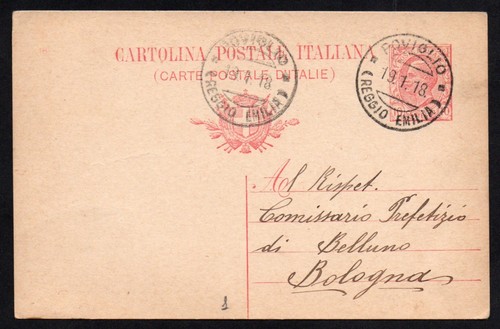 CARTOLINA POSTALE ITALIANA
(CARTE POSTALE D'ITALIE)
POVIGLIO
19.1.18
(REGGIO EMILIA)
POVIGLIO
19.1.18.
(REGGIO EMILIA)
Al Rispet.
Comissario Prefetizio
di Belluno
Bologna
1